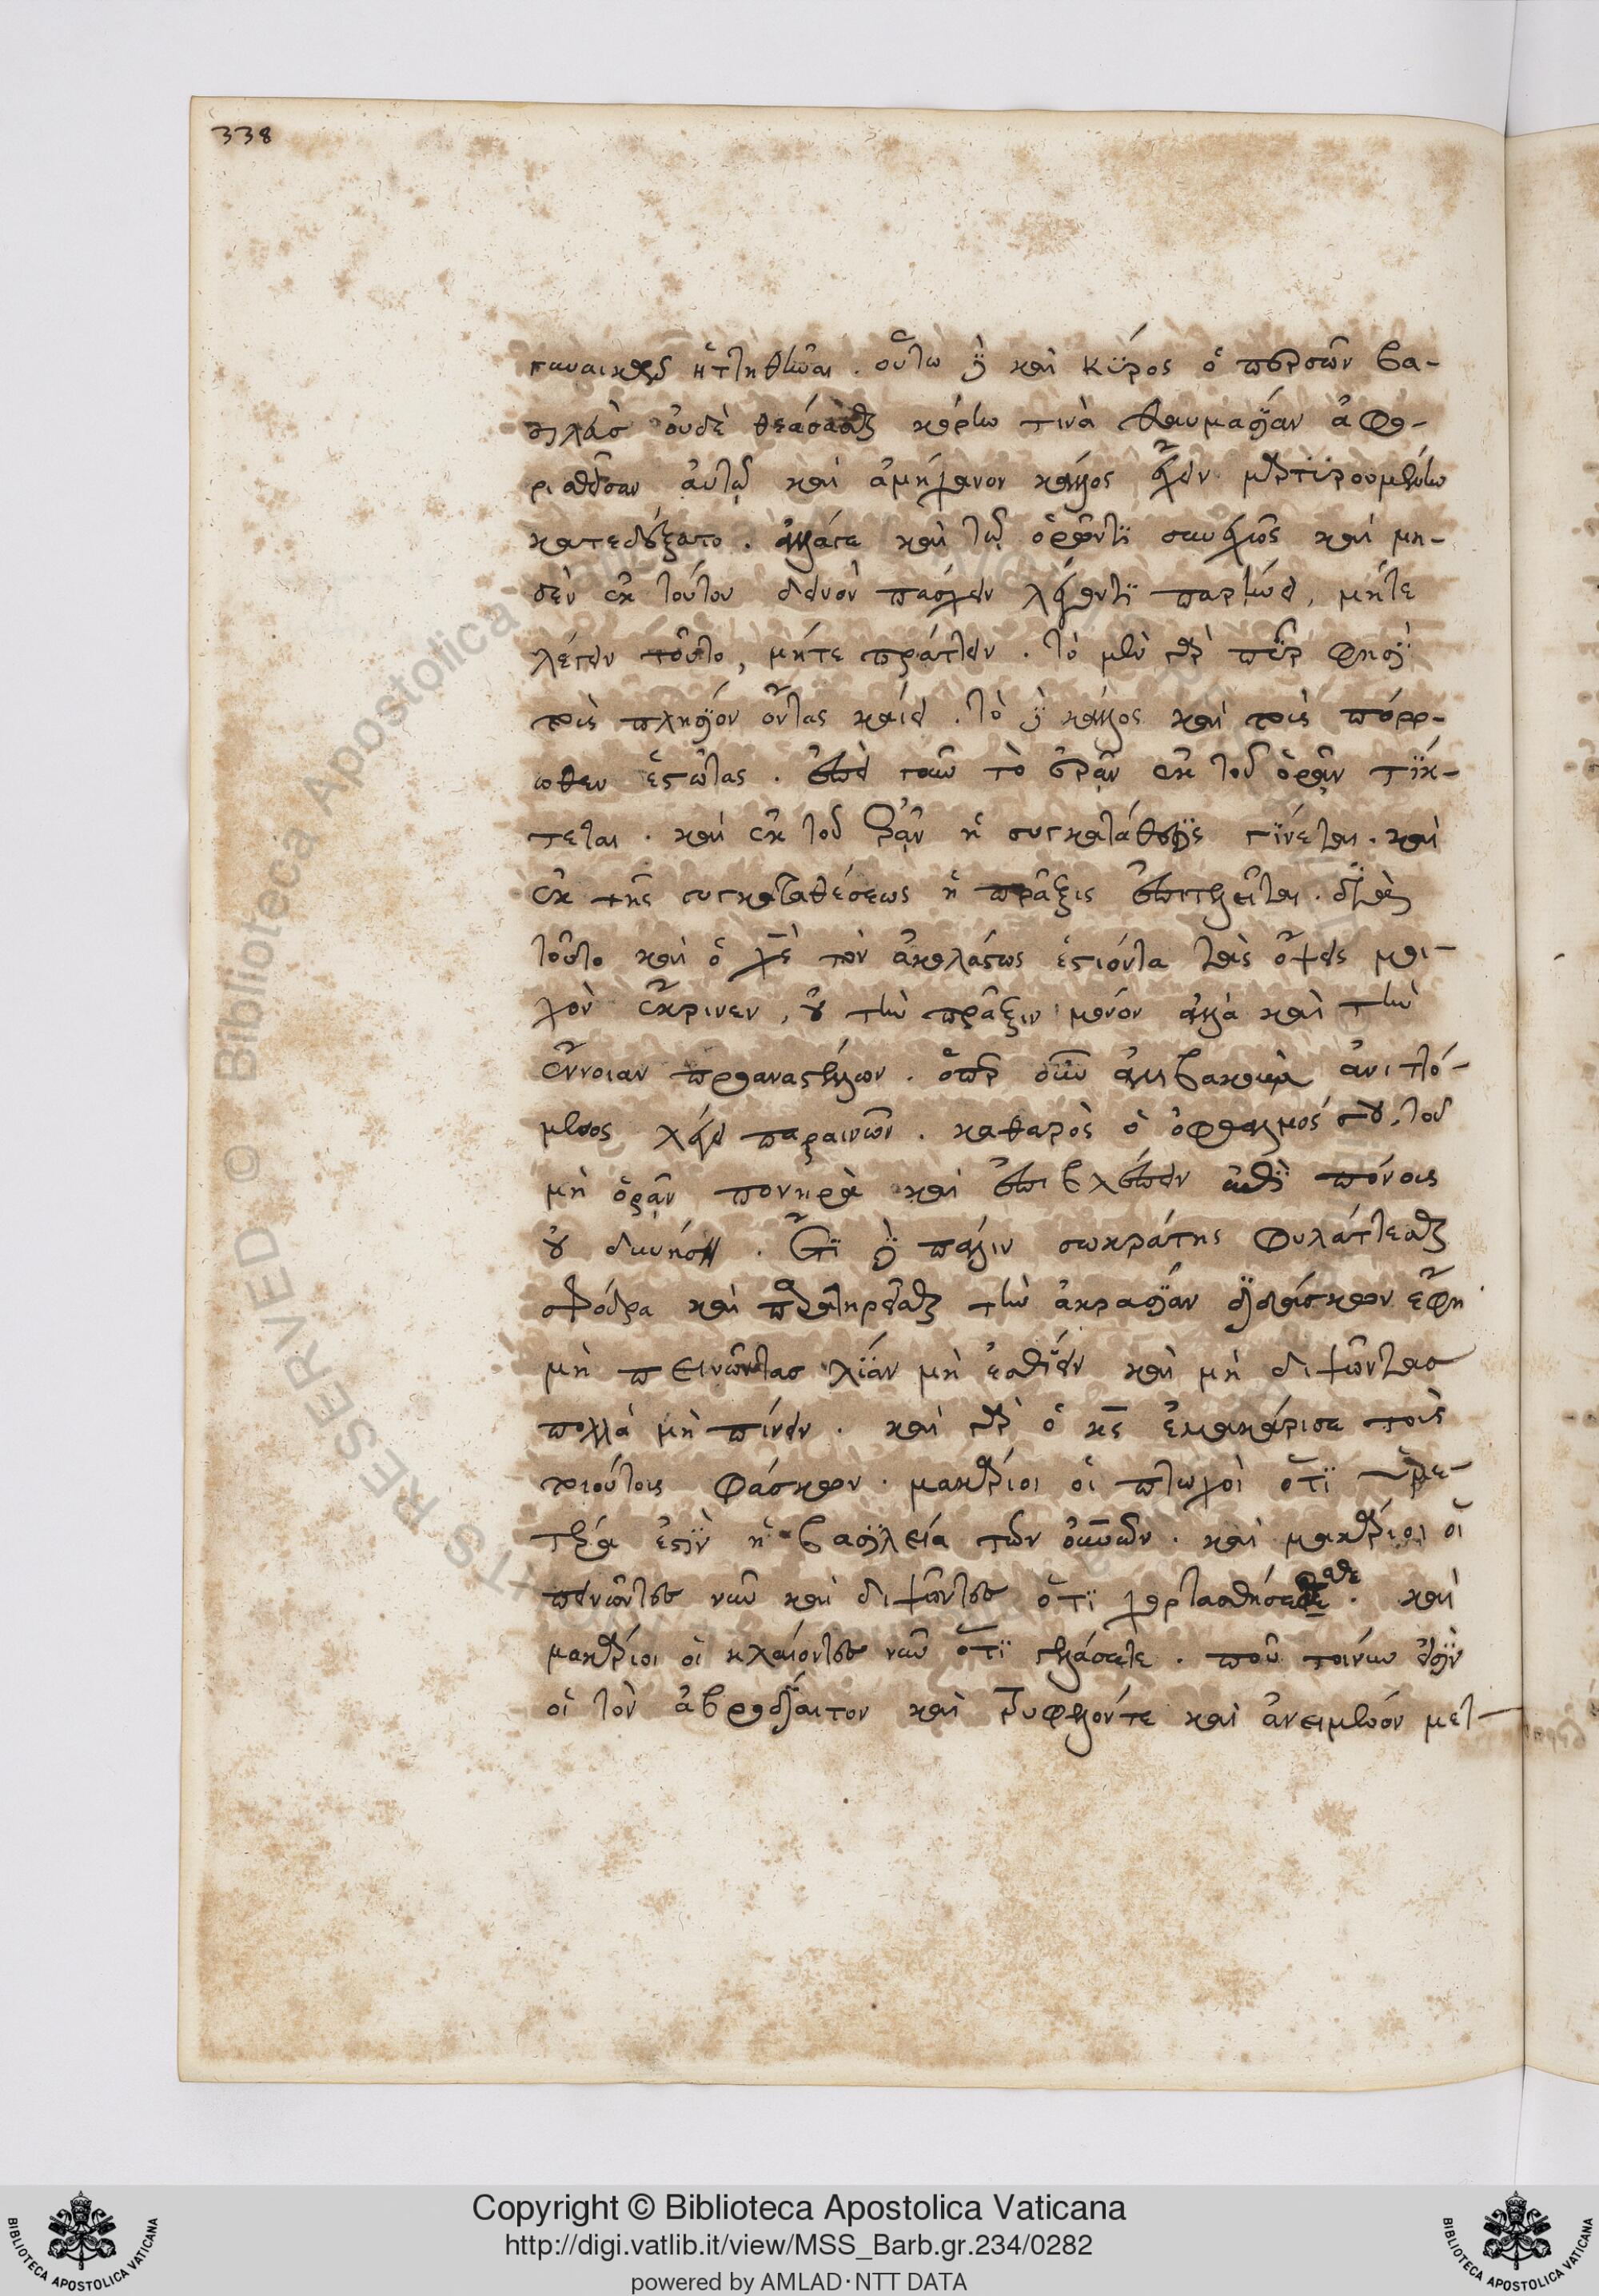 338
γυναικὸς ἡττηθῆναι. οὕτω δὲ καὶ κῦρος ὁ περσῶν βα-
σιλεὺς οὐδὲ θεάσασθαι κόρην τινὰ θαυμασίαν ἀφο-
ρισθεῖσαν αὐτῷ καὶ ἀμήχανον κάλλος ἔχειν μαρτυρουμένην
κατεδέξατο. ἀλλά γε καὶ τῷ ὁρῶντι συνεχῶς καὶ μη-
δὲν ἐκ τούτου δεινὸν πάσχειν λέγοντι παρῄνει, μήτε
λέγειν τοῦτο, μήτε πράττειν. τὸ μὲν γὰρ πῦρ φησὶ
τοὺς πλησίον ὄντας καίει. τὸ δὲ κάλλος καὶ τοὺς πόρρ-
ωθεν ἑστῶτας. ἐπεὶ γοῦν τὸ ἐρᾶν ἐκ τοῦ ὁρᾶν τίκ-
τεται. καὶ ἐκ τοῦ ἐρᾶν ἡ συγκατάθεσις γίνεται. καὶ
ἐκ τῆς συγκαταθέσεως ἡ πρᾶξις ἐπιτελεῖται. διὰ
τοῦτο καὶ ὁ χς τὸν ἀκολάστως ἑστιῶντα τὰς ὄψεις μοι-
χὸν ἔκρινεν, οὐ τὴν πρᾶξιν μόνον ἀλλὰ καὶ τὴν
ἔννοιαν προαναστέλλων. ὅπερ οὖν ἀμβακοὺμ αἰνιττό-
μενος λέγει παραινῶν. καθαρὸς ὁ ὀφθαλμός σου, τοῦ
μὴ ὁρᾶν πονηρὰ καὶ ἐπιβλέπειν ἐπὶ πόνους
οὐ δυνήσῃ. ἔτι δὲ πάλιν σωκράτης φυλάττεσθαι
σφόδρα καὶ παρατηρεῖσθαι τὴν ἀκρασίαν διδάσκων ἔφη
μὴ πεινῶντας λίαν μὴ ἐσθίειν καὶ μὴ διψῶντας
πολλὰ μὴ πίνειν. καὶ γὰρ ὁ κς ἐμακάρισε τοὺς
τοιούτους φάσκων. μακάριοι οἱ πτωχοὶ ὅτι ὑμε-
τέρα ἐστὶν ἡ βασιλεία τῶν οὐνῶν. καὶ μακάριοι οἱ
πεινῶντες νῦν καὶ διψῶντες ὅτι χορτασθήσεσθε. καὶ
μακάριοι οἱ κλαίοντες νῦν ὅτι γελάσετε. ποῦ τοίνυν εἰσὶν
οἱ τὸν ἁβροδίαιτον καὶ τρυφηλόν τε καὶ ἀνειμένον μετ-
Copyright © Biblioteca Apostolica Vaticana
http://digi.vatlib.it/view/MSS_Barb.gr.234/0282
powered by AMLAD·NTT DATA